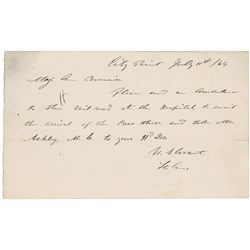 City Point July 11th /64
Maj. Gen.
Please send an Ambulance
to the rail road at the Hospital to await
the arrival of the Cars there and take Mr.
Ashley M. C. to your Hd Qrs
U. S. Grant
Lt. Gen.